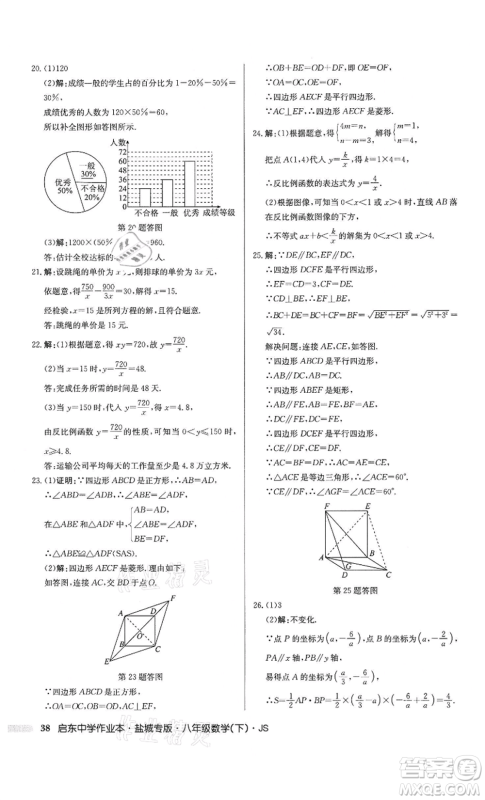 20. (1)120
(2)解:成绩一般的学生占的百分比为1-20%-50%=
30%,
成绩优秀的人数为120×50%=60(人),
所以补全图形如答图所示.
人数
72
60
48
36
24
12
0
优秀
50%
一般
30%
不合格
20%
不合格 一般 优秀 成绩等级
第20题答图
(3)解:1200×(50%
=960.
答:估计全校达标的
人.
21. 解:设跳绳的单价为x元,则排球的单价为3x元,
依题意,得750/x-900/3x=30,
经检验,x=15是所列方程的解,且符合题意.
答:跳绳的单价是15元.
22. 解:(1)根据题意,得xy=720,故y=720/x.
(2)当x=15时,y=720/15=48.
答:完成任务所需的时间是48天.
(3)当y=150时,代入y=720/x,得x=4.8,
由反比例函数y=720/x的性质,可知当y≤150时,
x≥4.8.
答:运输公司平均每天的工作量至少是4.8万米³.
23. (1)证明:∵四边形ABCD是正方形,
∴AB=AD,
∴∠ABD=∠ADB,
∴∠ABE=∠ADF.
在△ABE与△ADF中,
AB=AD,
∠ABE=∠ADF,
BE=DF,
∴△ABE≌△ADF.
(2)解:四边形AECF是菱形.理由如下:
如答图,连接AC,与BD交于点O.
F
A
D
O
B
C
E
第23题答图
∵四边形ABCD是正方形,
∴OA=OC,OB=OD,AC⊥EF,
∴OB+BE=OD+DF,即OE=OF.
∵OA=OC,OE=OF,
∴四边形AECF是平行四边形.
∵AC⊥EF,
∴四边形AECF是菱形.
24. 解:(1)根据题意,得{4m=n, n-m=3,解得{m=1, n=4.
把点A(1,4)代入y=k/x,得k=1×4=4,
∴反比例函数的表达式为y=4/x.
(2)根据图像,可知当0<x≤1或x≥4时,直线AB落
在反比例函数y=k/x图像的下方或在图像上,即不等
式ax+b≤k/x的解集为0<x≤1或x≥4.
25. 解:∵DE∥BC,EF∥DC,
∴四边形DCFE是平行四边形,
∴EF=CD=3,CF=DE,
∵CD⊥BE,
∴EF⊥BE,
∴BC+DE=BC+CF=BF=√BE²+EF²=√5²+3²=
√34.
解决问题:连接AE,CE,如答图.
∵四边形ABCD是平行四边形,
∴AB∥DC.
∵四边形ABEF是矩形,
∴AB∥FE,BF=AE,
∴DC∥FE,
∴四边形DCEF是平行四边形,
∴CE∥DF.
∵AC=BF=DF,
∴AC=AE=CE,
∴△ACE是等边三角形,
∴∠ACE=60°.
∵CE∥DF,
∴∠AGF=∠ACE=60°.
F
E
A
B
G
D
C
第25题答图
26. (1)3
(2)解:不变化.
∵点P的坐标为(a,-6/a),
∵PA∥x轴,PB∥y轴,
易得点A的坐标为(a/2,-6/a).
∴S=1/2AP·BP=1/2·a/2·6/a=3/2.
38 启东中学作业本·盐城专版·八年级数学(下)·JS